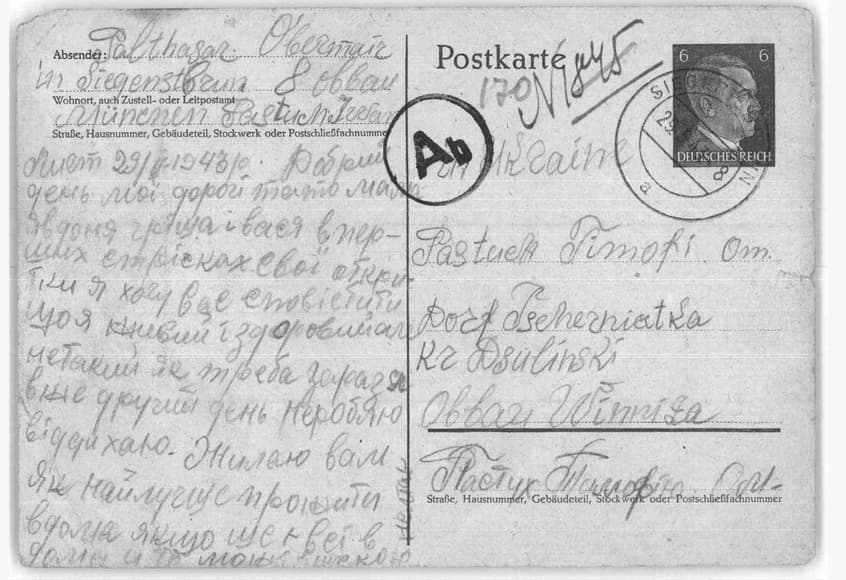 Absender: Balthasar Obermair
in Siegenstbrun 8 obbau
Wohnort, auch Zustell- oder Leitpostamt
München Pastuch Iwan
Straße, Hausnummer, Gebäudeteil, Stockwerk oder Postschließfachnummer
Лист 29/ 1943р. Добрий
день мої дорогі тато мамо
явдоня гріша і вася в пер-
ших стрісках свої откри-
тки я хочу вас сповістити
що я живий і здоровий але
нетакий як треба зараз я
вже другий день нероблю
віддихаю. Жилаю вам
як найлучше прожити
вдома якщо ще всі в
дома
Postkarte
170 N1845
6 6
DEUTSCHES REICH
SIEGERT
a
8
Ab
in Ukraine
Pastuch Timofi Om.
Dorf Tscherniatka
Kr Dsulinski
Obbau Winniza
Пастух
Straße, Hausnummer, Gebäudeteil, Stockwerk oder Postschließfachnummer